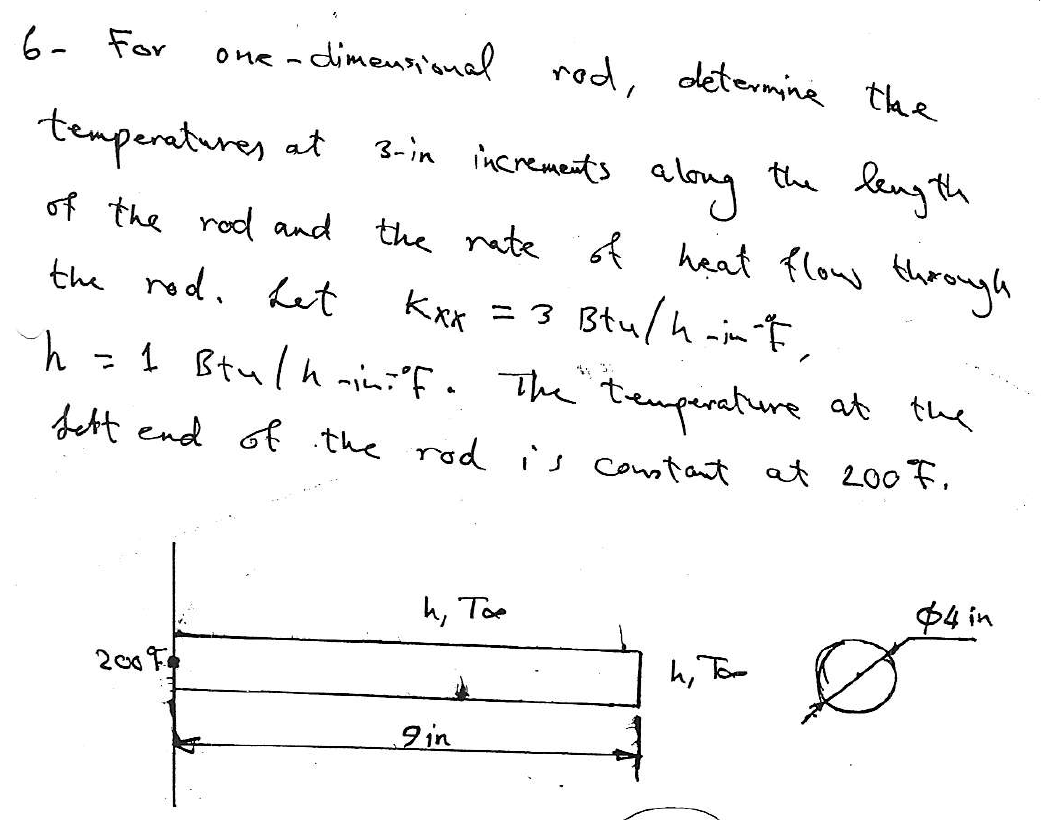 6- For one-dimensional rod, determine the
temperatures at 3-in increments along the length
of the rod and the rate of heat flow through
the rod. Let Kxx = 3 Btu/h-in-°F,
h = 1 Btu/h-in²-°F. The temperature at the
left end of the rod is constant at 200°F.
h, T∞
200°F
h, T∞
φ4 in
9 in